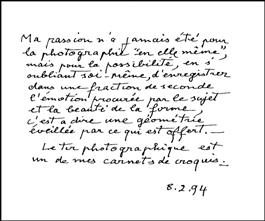 Ma passion n'a jamais été pour
la photographie "en elle même",
mais pour la possibilité, en s'
oubliant soi-même, d'enregistrer
dans une fraction de seconde
l'émotion procurée par le sujet
et la beauté de la forme,
c'est a dire une géométrie
éveillée par ce qui est offert. —
Le tir photographique est
un de mes carnets de croquis. –
8.2.94